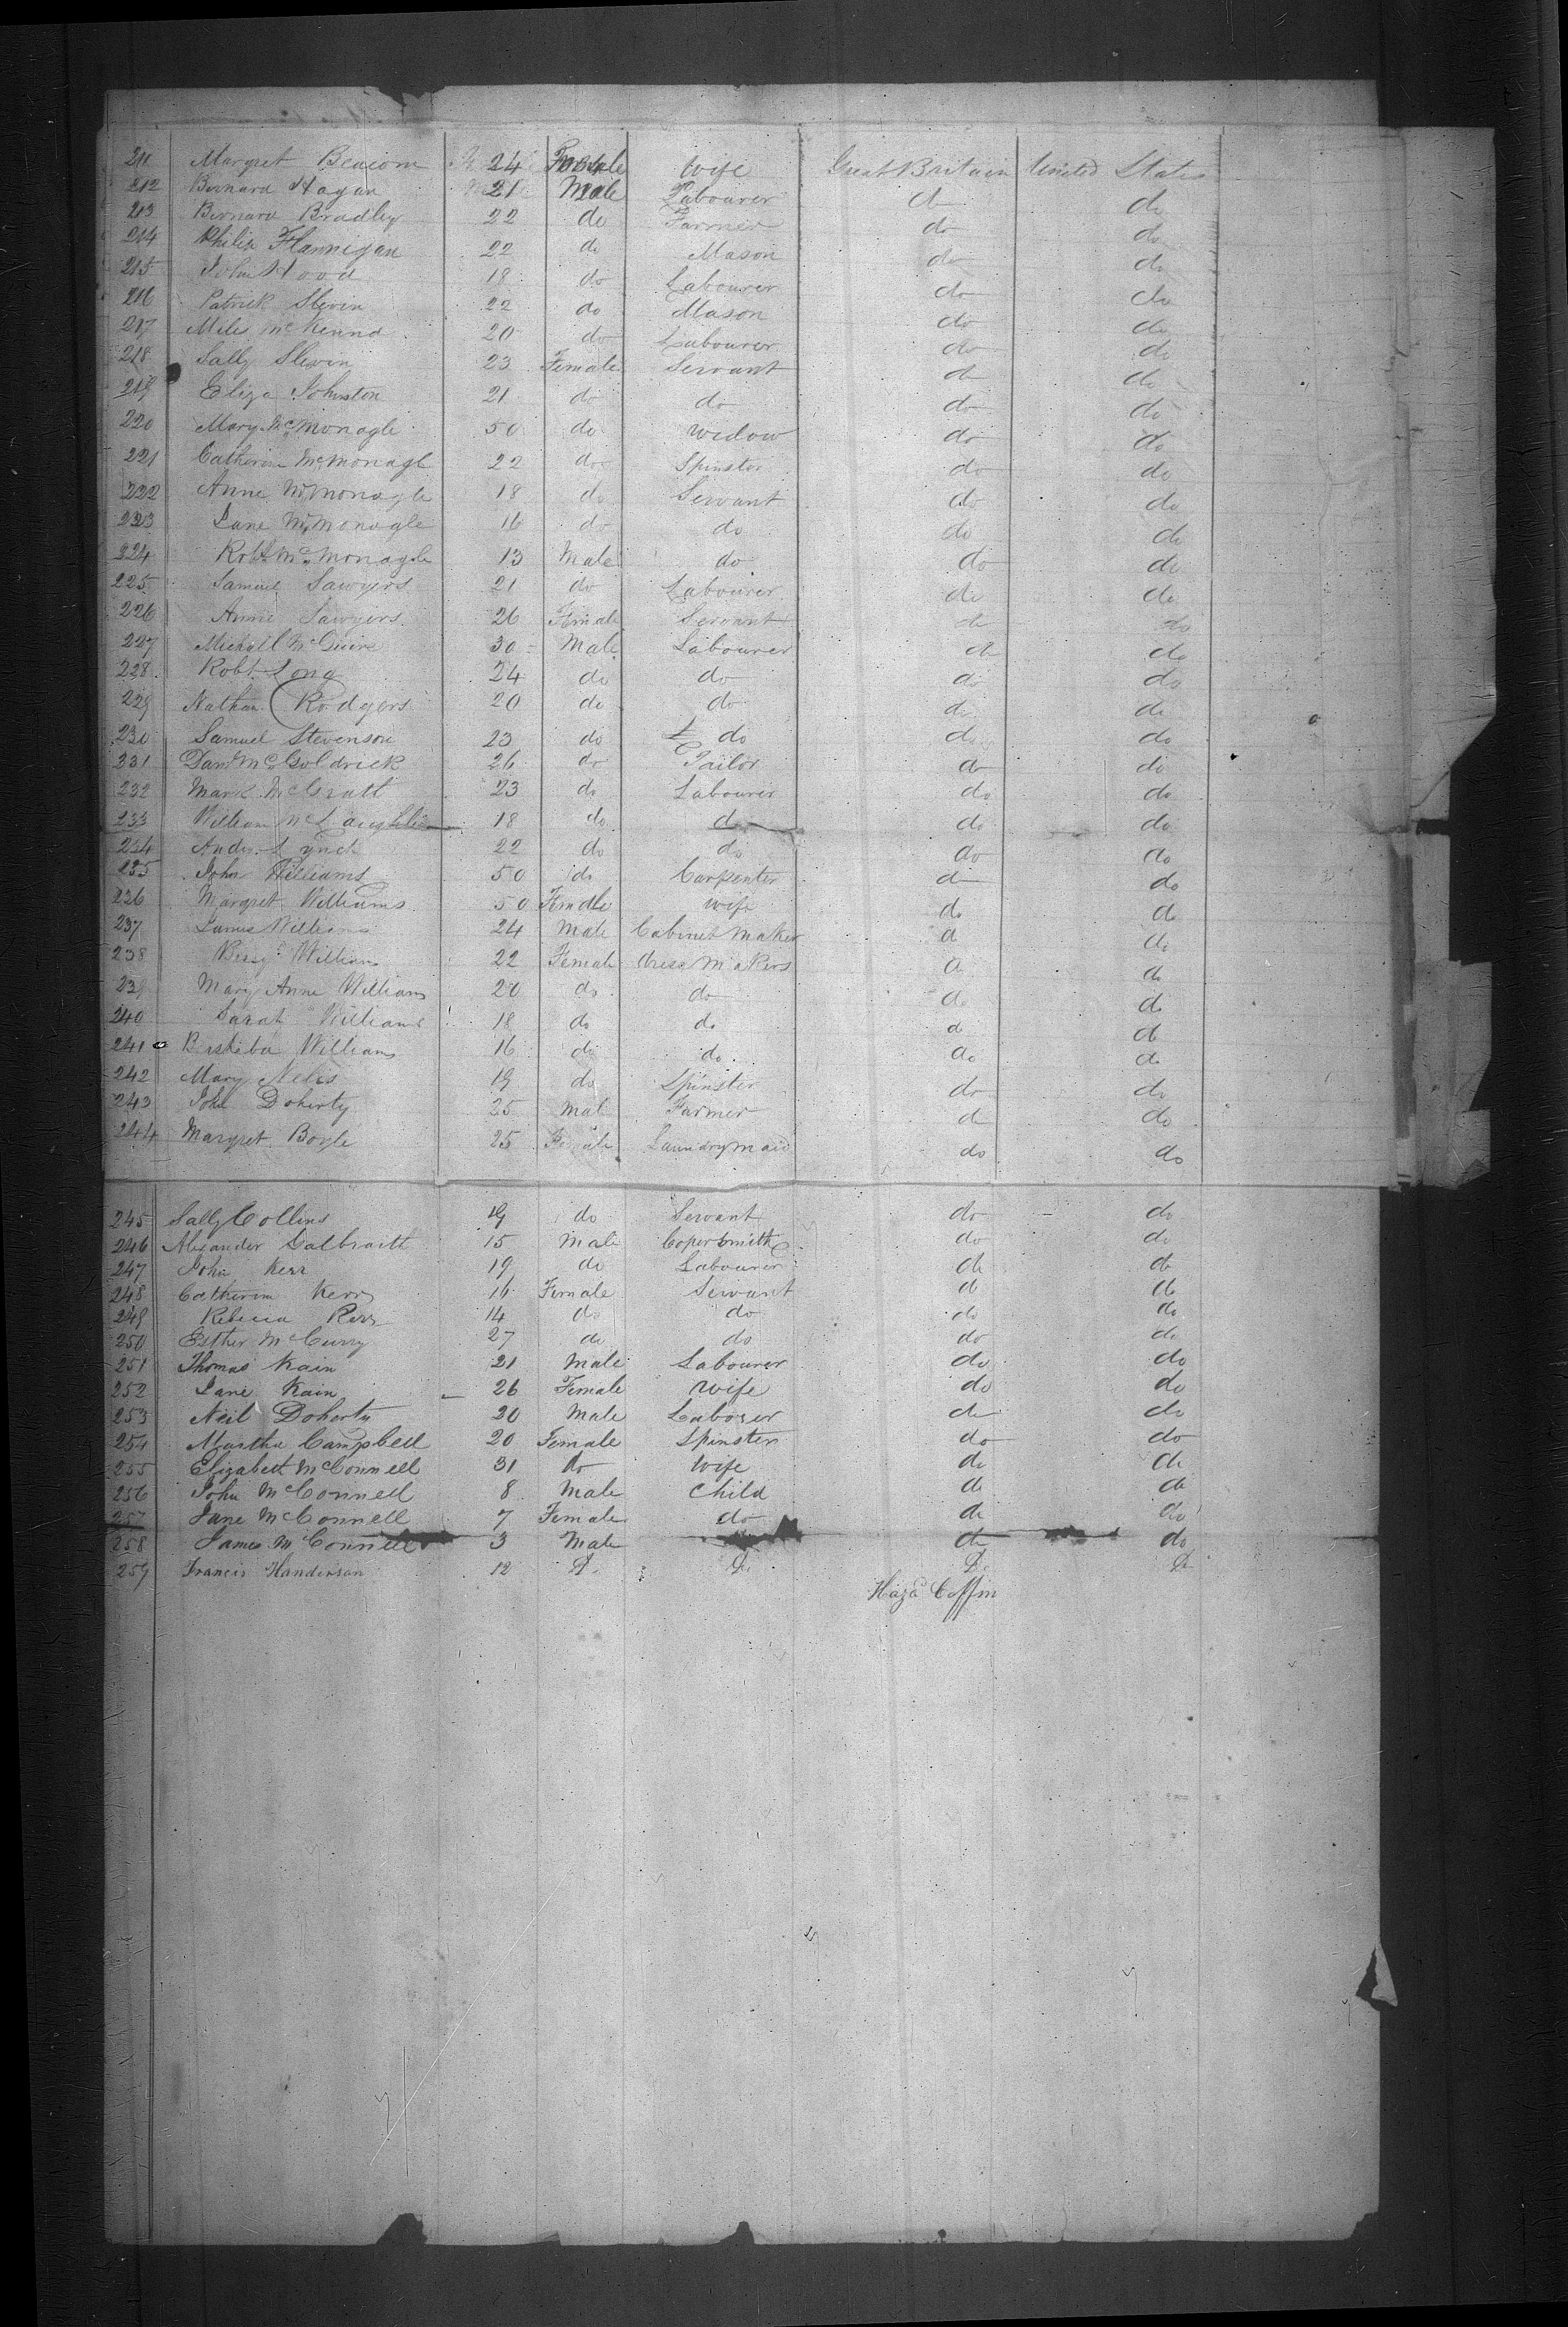 211 Margret Beacom 24 Female wife Great Britain United States
212 Bernard Hagan 21 Male Labourer do do
213 Bernard Bradley 22 do Farmer do do
214 Philip Flannigan 22 do Mason do do
215 John Hood 18 do Labourer do do
216 Patrick Slevin 22 do Mason do do
217 Miles McKenna 20 do Labourer do do
218 Sally Slevin 23 Female Servant do do
219 Eliza Johnston 21 do do do do
220 Mary McMonagle 50 do widow do do
221 Catherine McMonagl 22 do Spinster do do
222 Anne McMonagle 18 do Servant do do
223 Jane McMonagle 16 do do do do
224 Robt McMonagle 13 Male do do do
225 Samuel Sawyers 21 do Labourer do do
226 Anne Sawyers 26 Female Servant do do
227 Michall McGuire 30 Male Labourer do do
228 Robt Long 24 do do do do
229 Nathan Rodgers 20 do do do do
230 Samuel Stevenson 23 do do do do
231 Danl McGoldrick 26 do Tailor do do
232 Mark McGratt 23 do Labourer do do
233 William McLaughlin 18 do do do do
234 Andw Lynch 22 do do do do
235 John Williams 50 do Carpenter do do
236 Margret Williams 50 Female wife do do
237 James Williams 24 Male Cabinet Maker do do
238 Bessy Williams 22 Female dress Makers do do
239 Mary Anne Williams 20 do do do do
240 Sarah Williams 18 do do do do
241 Williams 16 do do do do
242 Mary Nelis 19 do Spinster do do
243 John Doherty 25 Mal Farmer do do
244 Margret Boyle 25 Female Laundrymaid do do
245 Sally Collins 19 do Servant do do
246 Alexander Galbraith 15 Male Copersmith do do
247 John Kerr 19 do Labourer do do
248 Catherine Kerr 16 Female Servant do do
249 Rebecca Kerr 14 do do do do
250 Esther McCurry 27 do do do do
251 Thomas Kain 21 Male Labourer do do
252 Jane Kain 26 Female Wife do do
253 Neil Doherty 20 Male Laborer do do
254 Martha Campbell 20 Female Spinster do do
255 Elizabett McConnell 31 do Wife do do
256 John McConnell 8 Male Child do do
257 Jane McConnell 7 Female do do do
258 James McConnell 3 Male do do
259 Francis Handerson 12 Do Do Do Do
Hazd Coffin